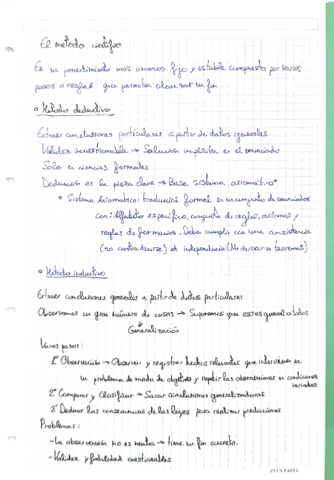 El método científico
Es un procedimiento más o menos fijo y estable compuesto por varios
pasos o reglas que permiten alcanzar un fin
Método deductivo
Extraer conclusiones particulares a partir de datos generales
Validez incuestionable → Solución implícita en el enunciado
Solo en ciencias formales
Deducción es la pieza clave → Base sistema axiomático*
* Sistema Axiomático: traducción formal en un conjunto de enunciados
con: Alfabeto específico, conjunto de reglas, axiomas y
reglas de formación. Debe cumplir con una consistencia
(no contradecirse) e independencia (No derivar en teoremas)
Método inductivo
Extraer conclusiones generales a partir de datos particulares
Observamos un gran número de casos → Suponemos que eso es general a todos
Generalización
Varios pasos:
1º Observación → Observar y registrar hechos relevantes que intervienen en
un problema de modo de objetivo y repetir las observaciones en condiciones
variadas
2º Comparar y Clasificar → Sacar conclusiones generalizadoras
3º Deducir las consecuencias de las leyes para realizar predicciones
Problemas:
- La observación no es neutra → tiene un fin concreto.
- Validez y fiabilidad cuestionables
PLUS PAPEL